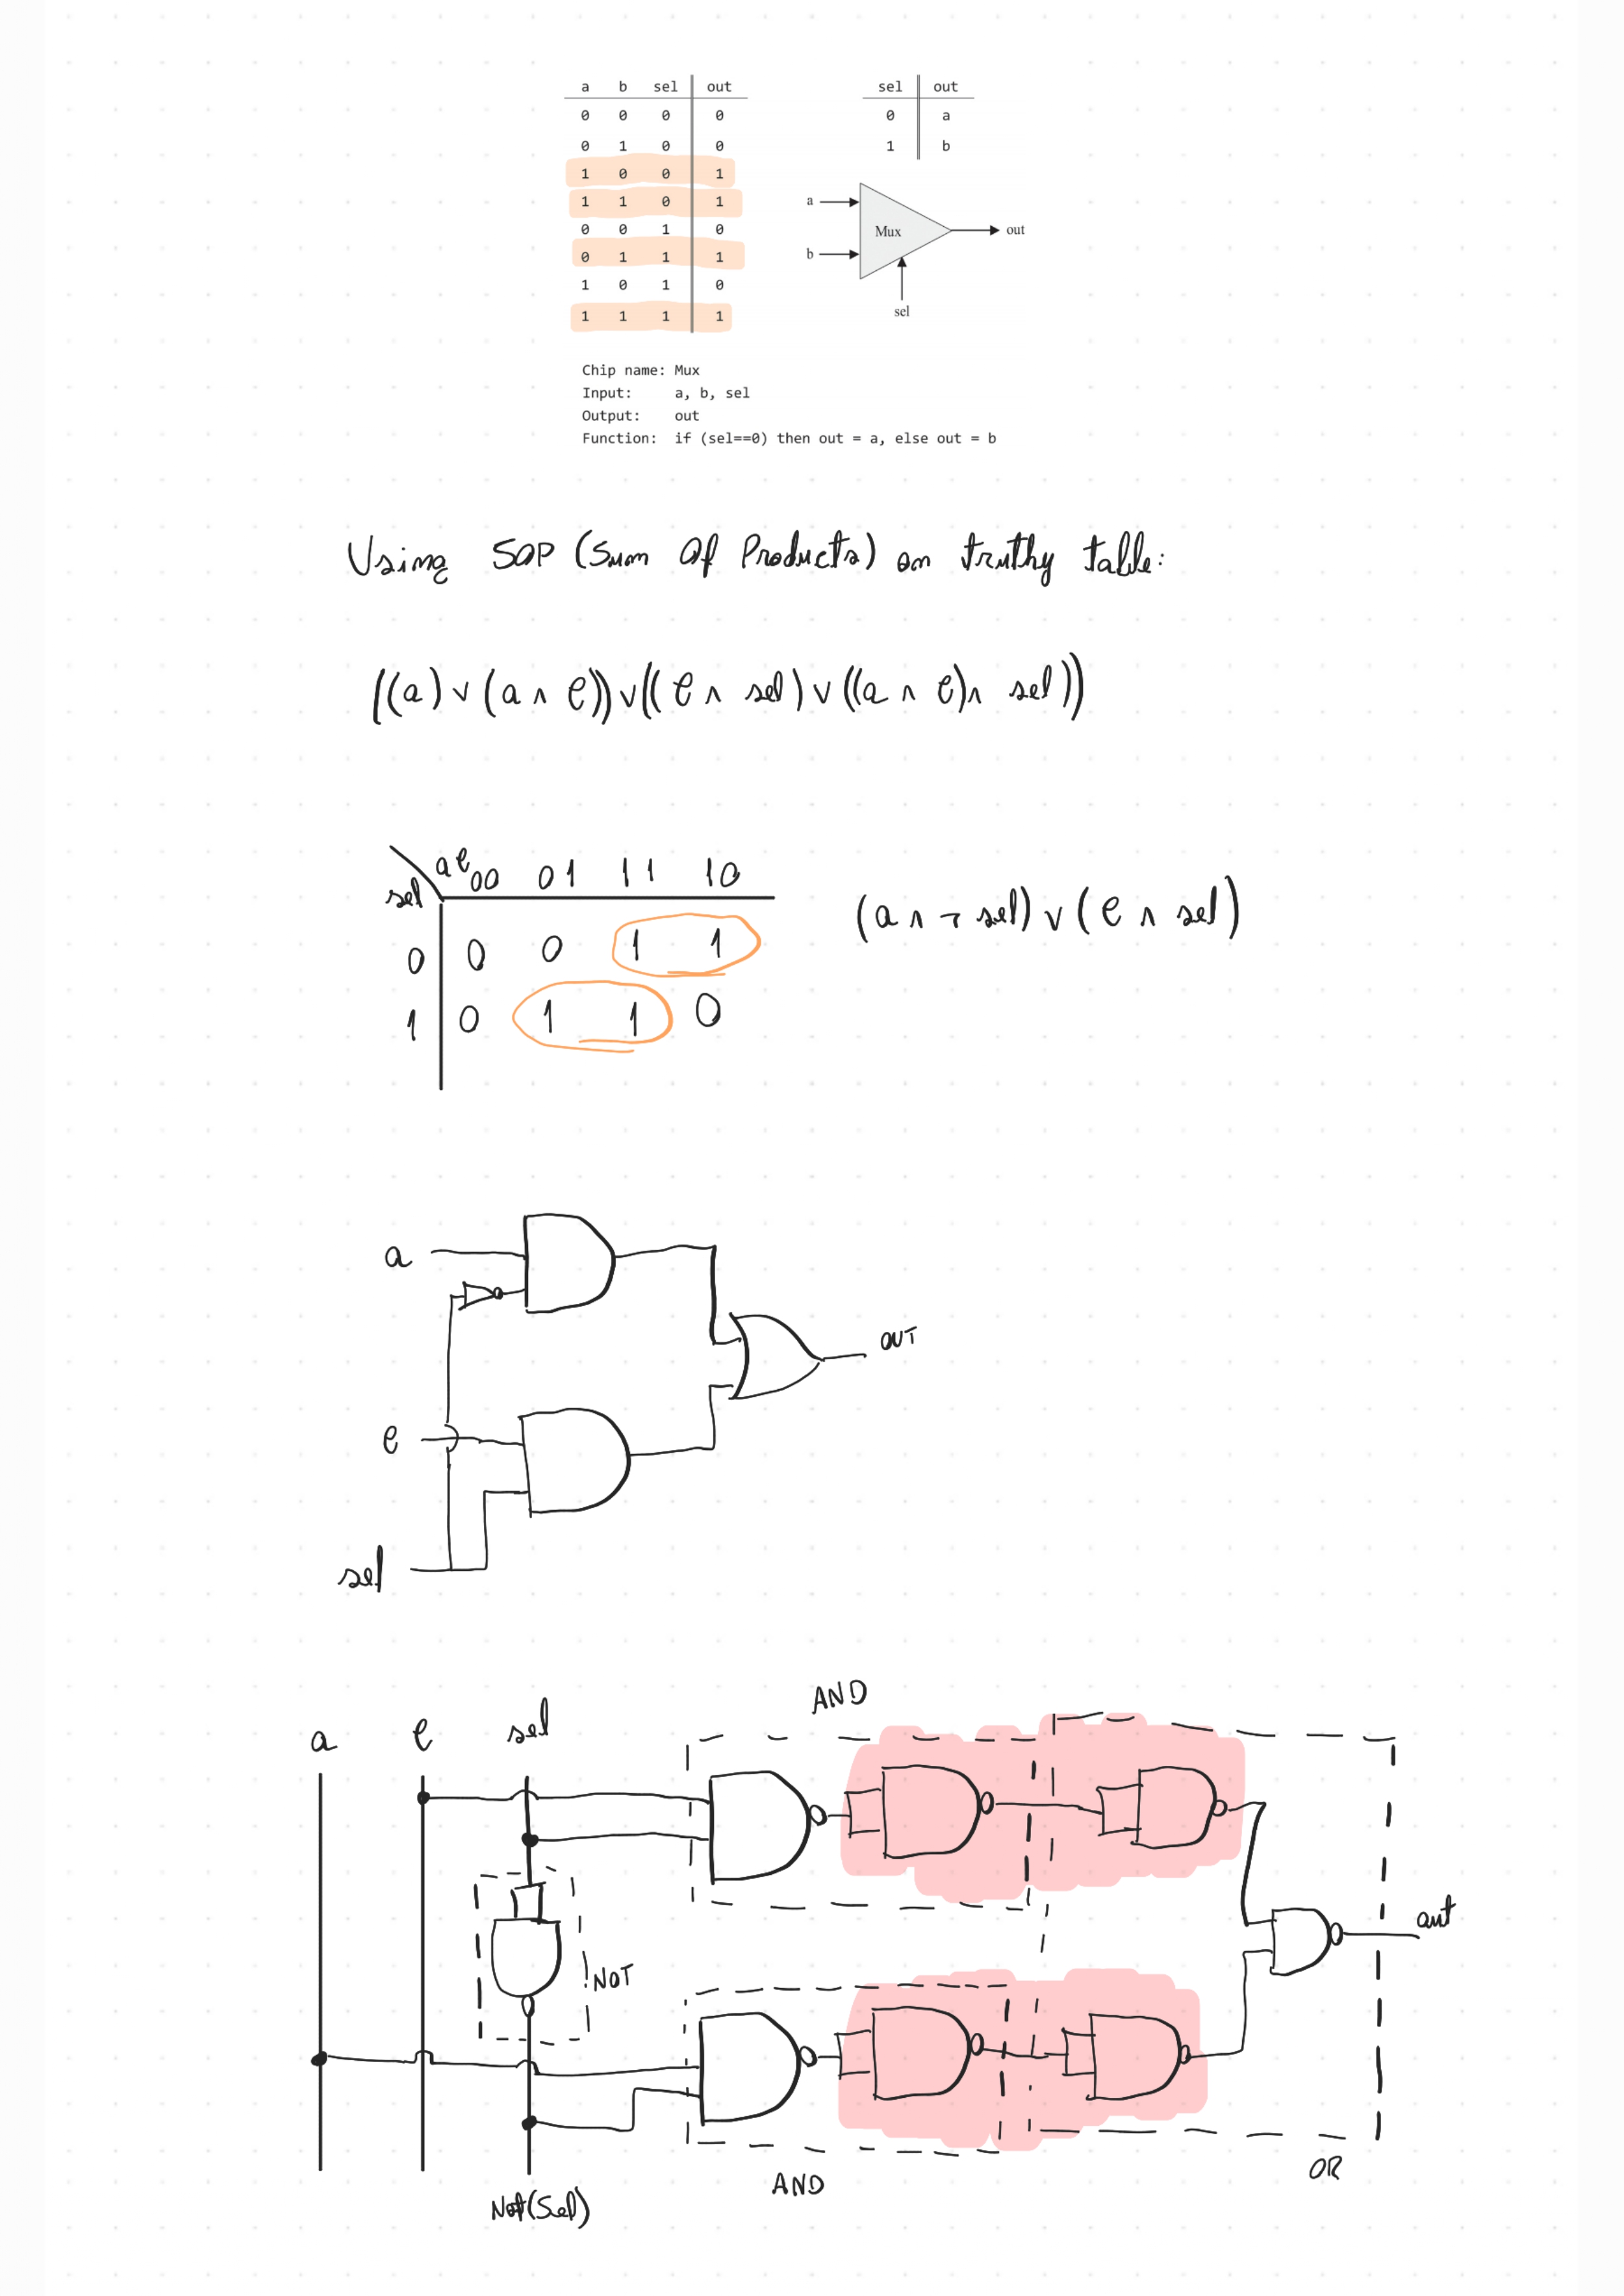 a b sel out
0 0 0 0
0 1 0 0
1 0 0 1
1 1 0 1
0 0 1 0
0 1 1 1
1 0 1 0
1 1 1 1
sel out
0 a
1 b
a
b
Mux
out
sel
Chip name: Mux
Input: a, b, sel
Output: out
Function: if (sel==0) then out = a, else out = b
Using SOP (Sum Of Products) on truthy table:
((a) ∨ (a ∧ b)) ∨ ((b ∧ sel) ∨ ((a ∧ b) ∧ sel))
ab 00 01 11 10
sel
0 0 0 1 1
1 0 1 1 0
(a ∧ ¬ sel) ∨ (b ∧ sel)
a
b
sel
OUT
AND
a b sel
NOT
out
AND
OR
Not(Sel)